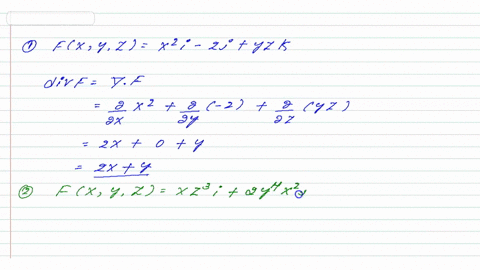 ① F(x,y,z) = x²i - 2j + yzk
div F = ∇.F
= ∂/∂x x² + ∂/∂y (-2) + ∂/∂z (yz)
= 2x + 0 + y
= 2x + y
② F(x,y,z) = xz³i + 2y⁴x²